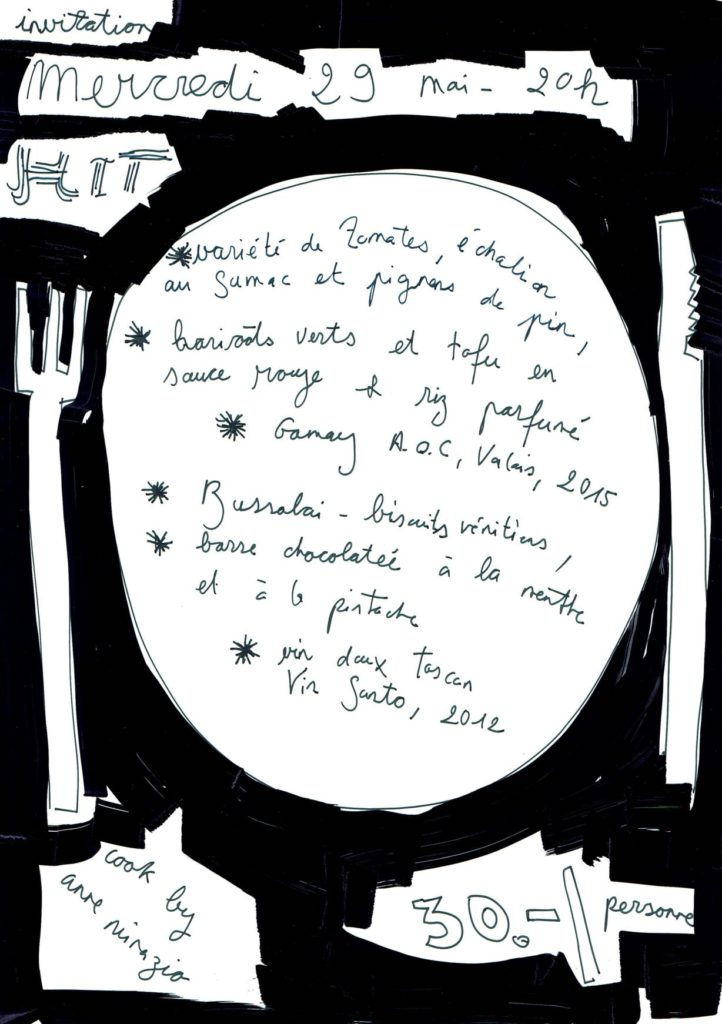 invitation
Mercredi 29 mai - 20h
HIT
* variété de tomates, échalion
au sumac et pignons de pin,
* haricots verts et tofu en
sauce rouge & riz parfumé
* Gamay A.O.C, Valais, 2015
* Bussolai - biscuits vénitiens,
* barre chocolatée à la menthe
et à la pistache
* vin doux toscan
Vin Santo, 2012
cook by
anne
30.-/personne